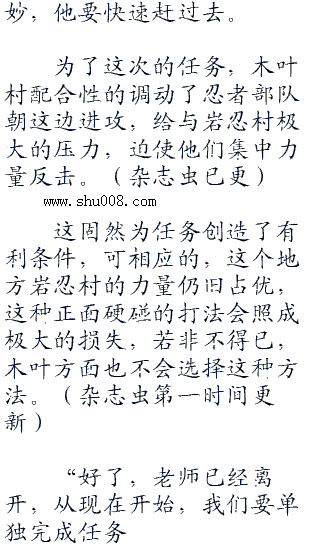 妙，他要快速赶过去。
为了这次的任务，木叶
村配合性的调动了忍者部队
朝这边进攻，给与岩忍村极
大的压力，迫使他们集中力
量反击。（杂志虫已更）
www.shu008.com
这周然为任务创造了有
利条件，可相应的，这个地
方岩忍村的力量仍旧占优，
这种正面硬碰的打法会照成
极大的损失，若非不得已，
木叶方面也不会选择这种方
法。（杂志虫第一时间更
新）
“好了，老师已经离
开，从现在开始，我们要单
独完成任务